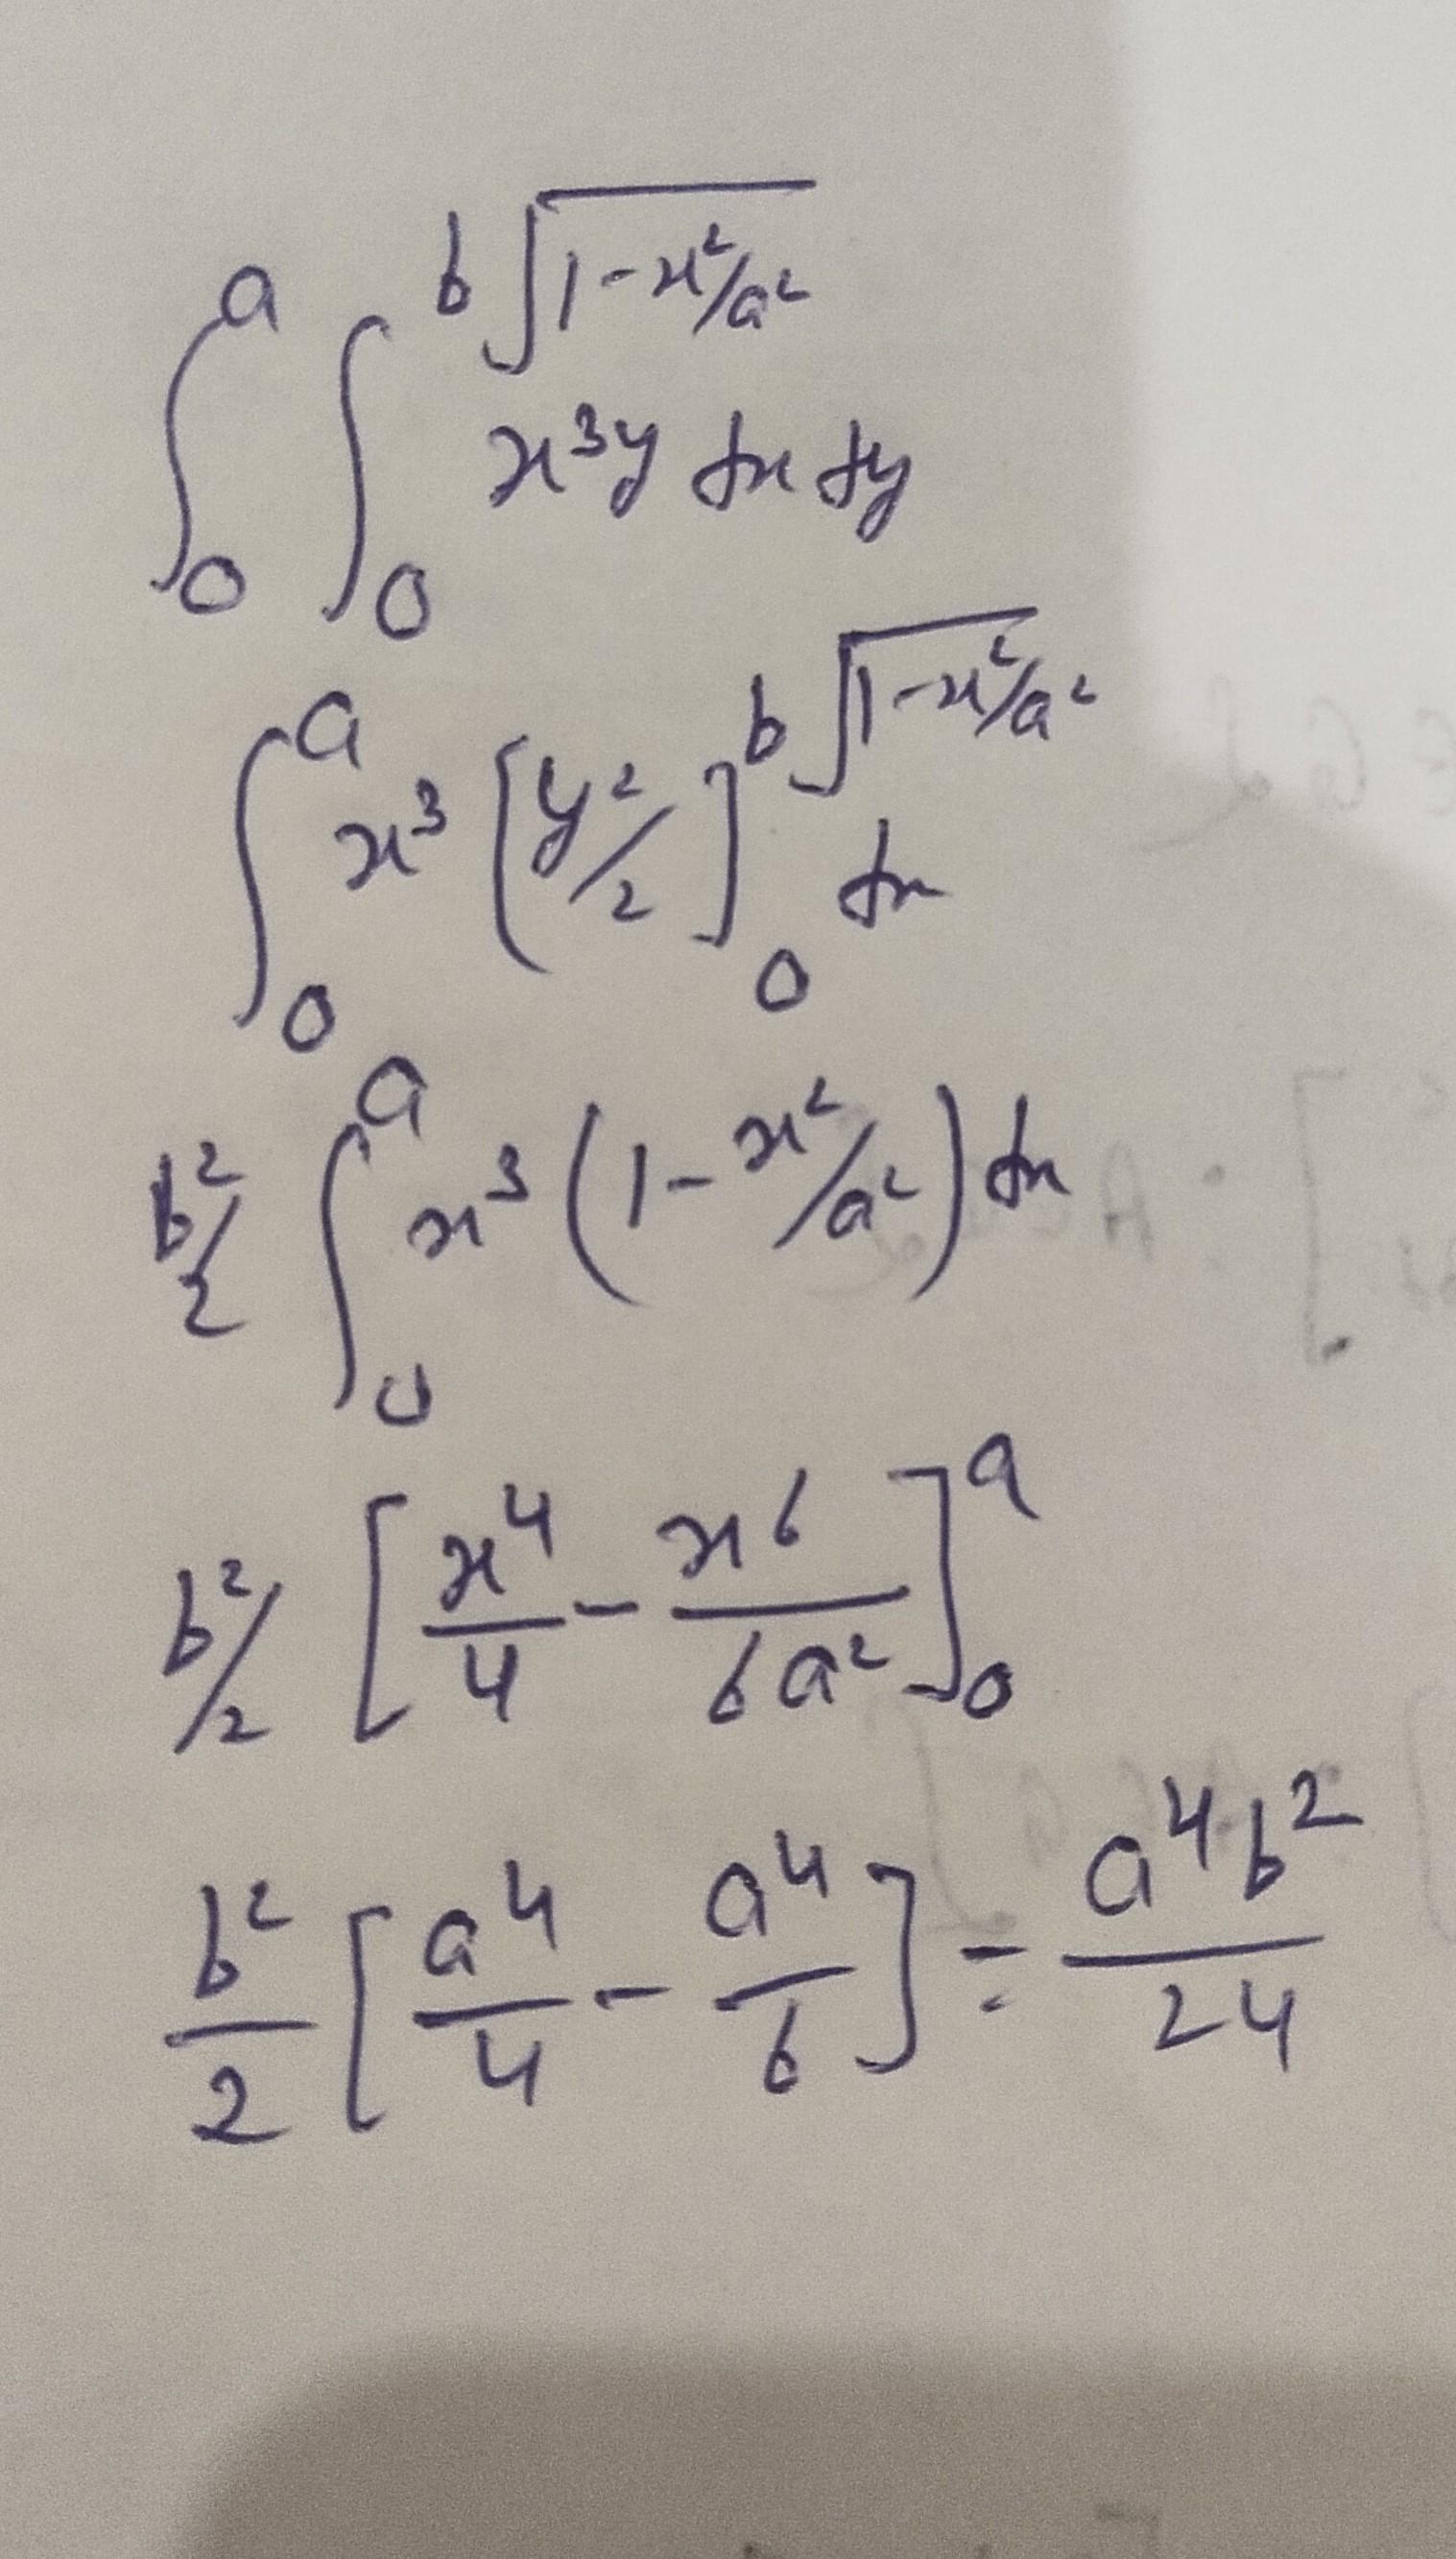 ∫₀^a ∫₀^{b√(1-x²/a²)} x³y dx dy
∫₀^a x³ [y²/2]₀^{b√(1-x²/a²)} dx
b²/2 ∫₀^a x³ (1 - x²/a²) dx
b²/2 [x⁴/4 - x⁶/6a²]₀^a
b²/2 [a⁴/4 - a⁴/6] = a⁴b²/24